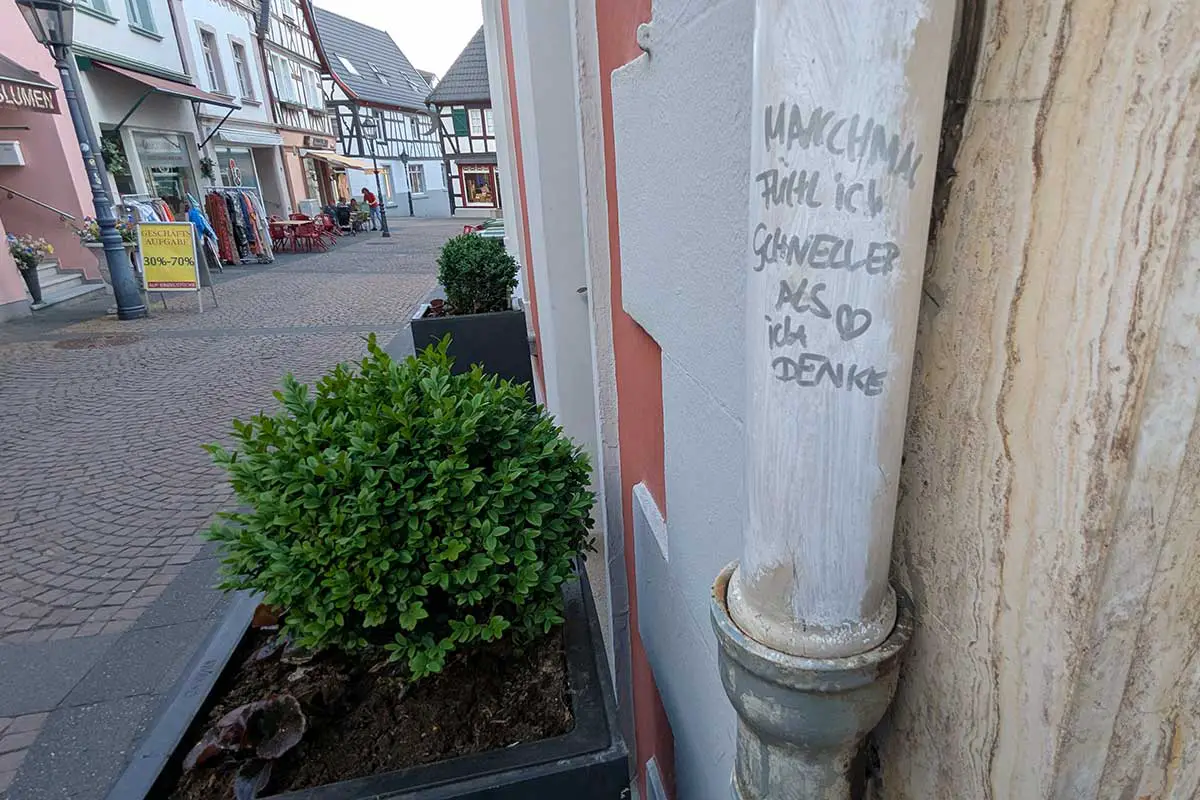 BLUMEN
GESCHÄFTS
AUFGABE
30%-70%
AUF EINZELSTÜCKE
MANCHMAL
FÜHL ich
SCHNELLER
ALS
ich
DENKE